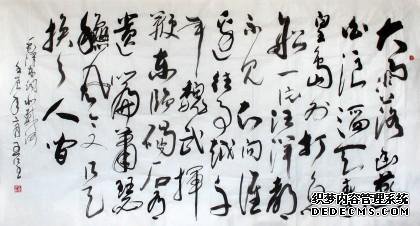 大雨落幽燕
白浪滔天秦
皇岛外打鱼
船一片汪洋都
不见知向谁
边往事越千
年魏武挥
鞭东临碣石有
遗篇萧瑟
秋风今又是
换了人间
毛泽东词北戴河
织梦内容管理系统
DEDECMS.COM